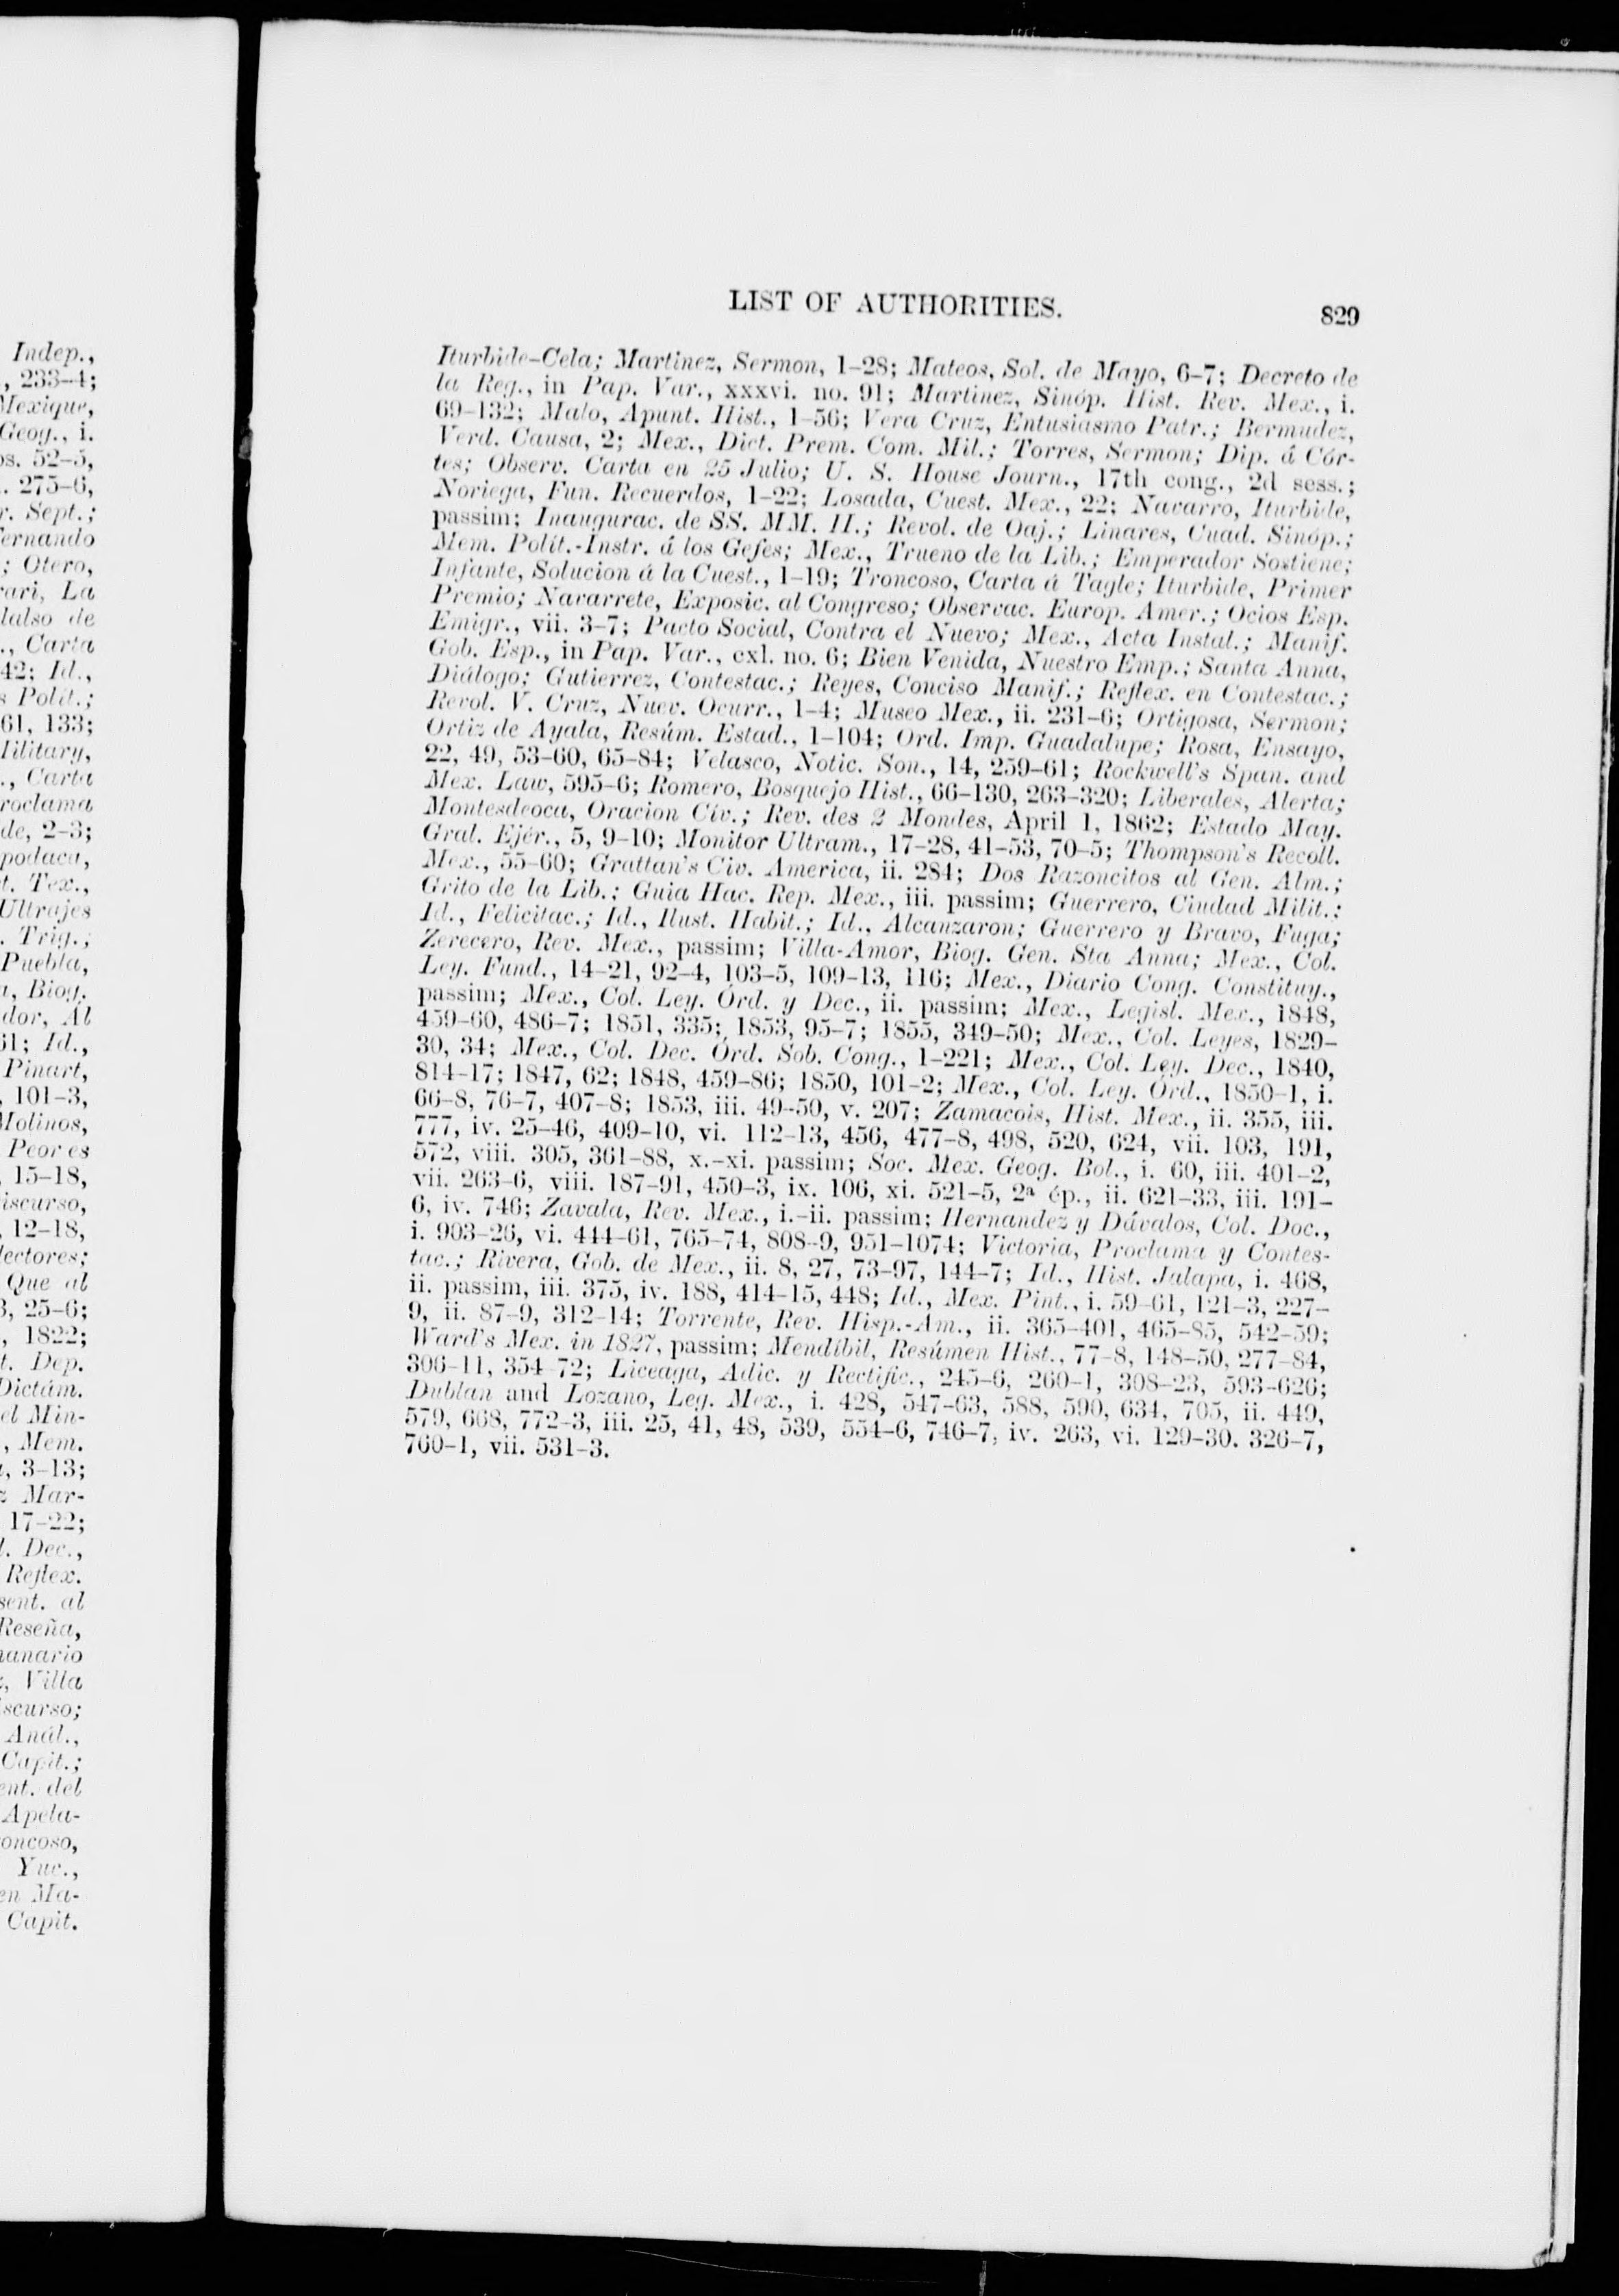 Indep.,
, 233-4;
Mexique,
Geog., i.
os. 52-5,
. 275-6,
r. Sept.;
Fernando
; Otero,
rari, La
dalso de
., Carta
42; Id.,
s Polít.;
61, 133;
Military,
., Carta
roclama
de, 2-3;
podaca,
t. Tex.,
Ultrajes
. Trig.;
Puebla,
a, Biog.
dor, Al
61; Id.,
Pinart,
, 101-3,
Molinos,
Peor es
, 15-18,
iscurso,
, 12-18,
lectores;
Que al
3, 25-6;
, 1822;
t. Dep.
Dictám.
el Min-
, Mem.
, 3-13;
z Mar-
17-22;
l. Dec.,
Reflex.
sent. al
Reseña,
nanario
z, Villa
iscurso;
Anál.,
Capit.;
ent. del
Apela-
oncoso,
Yuc.,
en Ma-
Capit.
LIST OF AUTHORITIES. 829
Iturbide-Cela; Martinez, Sermon, 1-28; Mateos, Sol. de Mayo, 6-7; Decreto de
la Reg., in Pap. Var., xxxvi. no. 91; Martinez, Sinóp. Hist. Rev. Mex., i.
69-132; Malo, Apunt. Hist., 1-56; Vera Cruz, Entusiasmo Patr.; Bermudez,
Verd. Causa, 2; Mex., Dict. Prem. Com. Mil.; Torres, Sermon; Dip. á Cór-
tes; Observ. Carta en 25 Julio; U. S. House Journ., 17th cong., 2d sess.;
Noriega, Fun. Recuerdos, 1-22; Losada, Cuest. Mex., 22; Navarro, Iturbide,
passim; Inaugurac. de SS. MM. II.; Revol. de Oaj.; Linares, Cuad. Sinóp.;
Mem. Polít.-Instr. á los Gefes; Mex., Trueno de la Lib.; Emperador Sostiene;
Infante, Solucion á la Cuest., 1-19; Troncoso, Carta á Tagle; Iturbide, Primer
Premio; Navarrete, Exposic. al Congreso; Observac. Europ. Amer.; Ocios Esp.
Emigr., vii. 3-7; Pacto Social, Contra el Nuevo; Mex., Acta Instal.; Manif.
Gob. Esp., in Pap. Var., cxl. no. 6; Bien Venida, Nuestro Emp.; Santa Anna,
Diálogo; Gutierrez, Contestac.; Reyes, Conciso Manif.; Reflex. en Contestac.;
Revol. V. Cruz, Nuev. Ocurr., 1-4; Museo Mex., ii. 231-6; Ortigosa, Sermon;
Ortiz de Ayala, Resúm. Estad., 1-104; Ord. Imp. Guadalupe; Rosa, Ensayo,
22, 49, 53-60, 65-84; Velasco, Notic. Son., 14, 259-61; Rockwell's Span. and
Mex. Law, 595-6; Romero, Bosquejo Hist., 66-130, 263-320; Liberales, Alerta;
Montesdeoca, Oracion Cív.; Rev. des 2 Mondes, April 1, 1862; Estado May.
Gral. Ejér., 5, 9-10; Monitor Ultram., 17-28, 41-53, 70-5; Thompson's Recoll.
Mex., 55-60; Grattan's Civ. America, ii. 284; Dos Razoncitos al Gen. Alm.;
Grito de la Lib.; Guia Hac. Rep. Mex., iii. passim; Guerrero, Ciudad Milit.;
Id., Felicitac.; Id., Ilust. Habit.; Id., Alcanzaron; Guerrero y Bravo, Fuga;
Zerecero, Rev. Mex., passim; Villa-Amor, Biog. Gen. Sta Anna; Mex., Col.
Ley. Fund., 14-21, 92-4, 103-5, 109-13, 116; Mex., Diario Cong. Constituy.,
passim; Mex., Col. Ley. Órd. y Dec., ii. passim; Mex., Legisl. Mex., 1848,
459-60, 486-7; 1851, 335; 1853, 95-7; 1855, 349-50; Mex., Col. Leyes, 1829-
30, 34; Mex., Col. Dec. Órd. Sob. Cong., 1-221; Mex., Col. Ley. Dec., 1840,
814-17; 1847, 62; 1848, 459-86; 1850, 101-2; Mex., Col. Ley. Órd., 1850-1, i.
66-8, 76-7, 407-8; 1853, iii. 49-50, v. 207; Zamacois, Hist. Mex., ii. 355, iii.
777, iv. 25-46, 409-10, vi. 112-13, 456, 477-8, 498, 520, 624, vii. 103, 191,
572, viii. 305, 361-88, x.-xi. passim; Soc. Mex. Geog. Bol., i. 60, iii. 401-2,
vii. 263-6, viii. 187-91, 450-3, ix. 106, xi. 521-5, 2ª ép., ii. 621-33, iii. 191-
6, iv. 746; Zavala, Rev. Mex., i.-ii. passim; Hernandez y Dávalos, Col. Doc.,
i. 903-26, vi. 444-61, 765-74, 808-9, 951-1074; Victoria, Proclama y Contes-
tac.; Rivera, Gob. de Mex., ii. 8, 27, 73-97, 144-7; Id., Hist. Jalapa, i. 468,
ii. passim, iii. 375, iv. 188, 414-15, 448; Id., Mex. Pint., i. 59-61, 121-3, 227-
9, ii. 87-9, 312-14; Torrente, Rev. Hisp.-Am., ii. 365-401, 465-85, 542-59;
Ward's Mex. in 1827, passim; Mendíbil, Resúmen Hist., 77-8, 148-50, 277-84,
306-11, 354-72; Liceaga, Adic. y Rectific., 245-6, 260-1, 308-23, 593-626;
Dublan and Lozano, Leg. Mex., i. 428, 547-63, 588, 590, 634, 705, ii. 449,
579, 668, 772-3, iii. 25, 41, 48, 539, 554-6, 746-7, iv. 263, vi. 129-30. 326-7,
760-1, vii. 531-3.